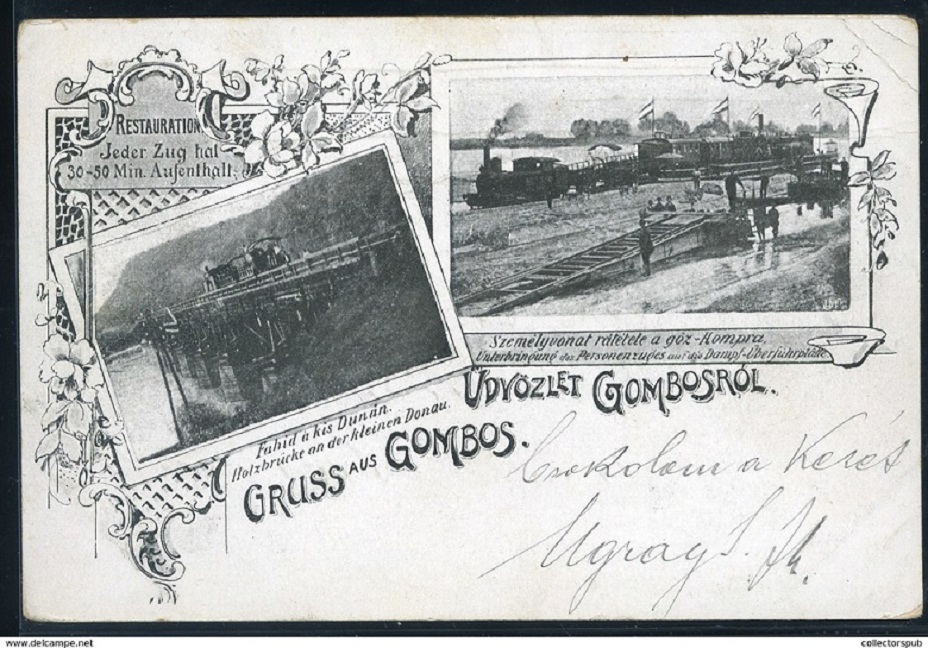 RESTAURATION
Jeder Zug hat
30-50 Min. Aufenthalt.
Személyvonat rátétele a göz-Kompra.
Unterbringung des Personenzuges auf die Dampf-Überfuhrplätte
ÜDVÖZLET GOMBOSRÓL.
Fahid a kis Dunán.
Holzbrücke an der kleinen Donau.
GRUSS AUS GOMBOS.
Csokolom a Kezét
Ugray
www.delcampe.net
collectorspub